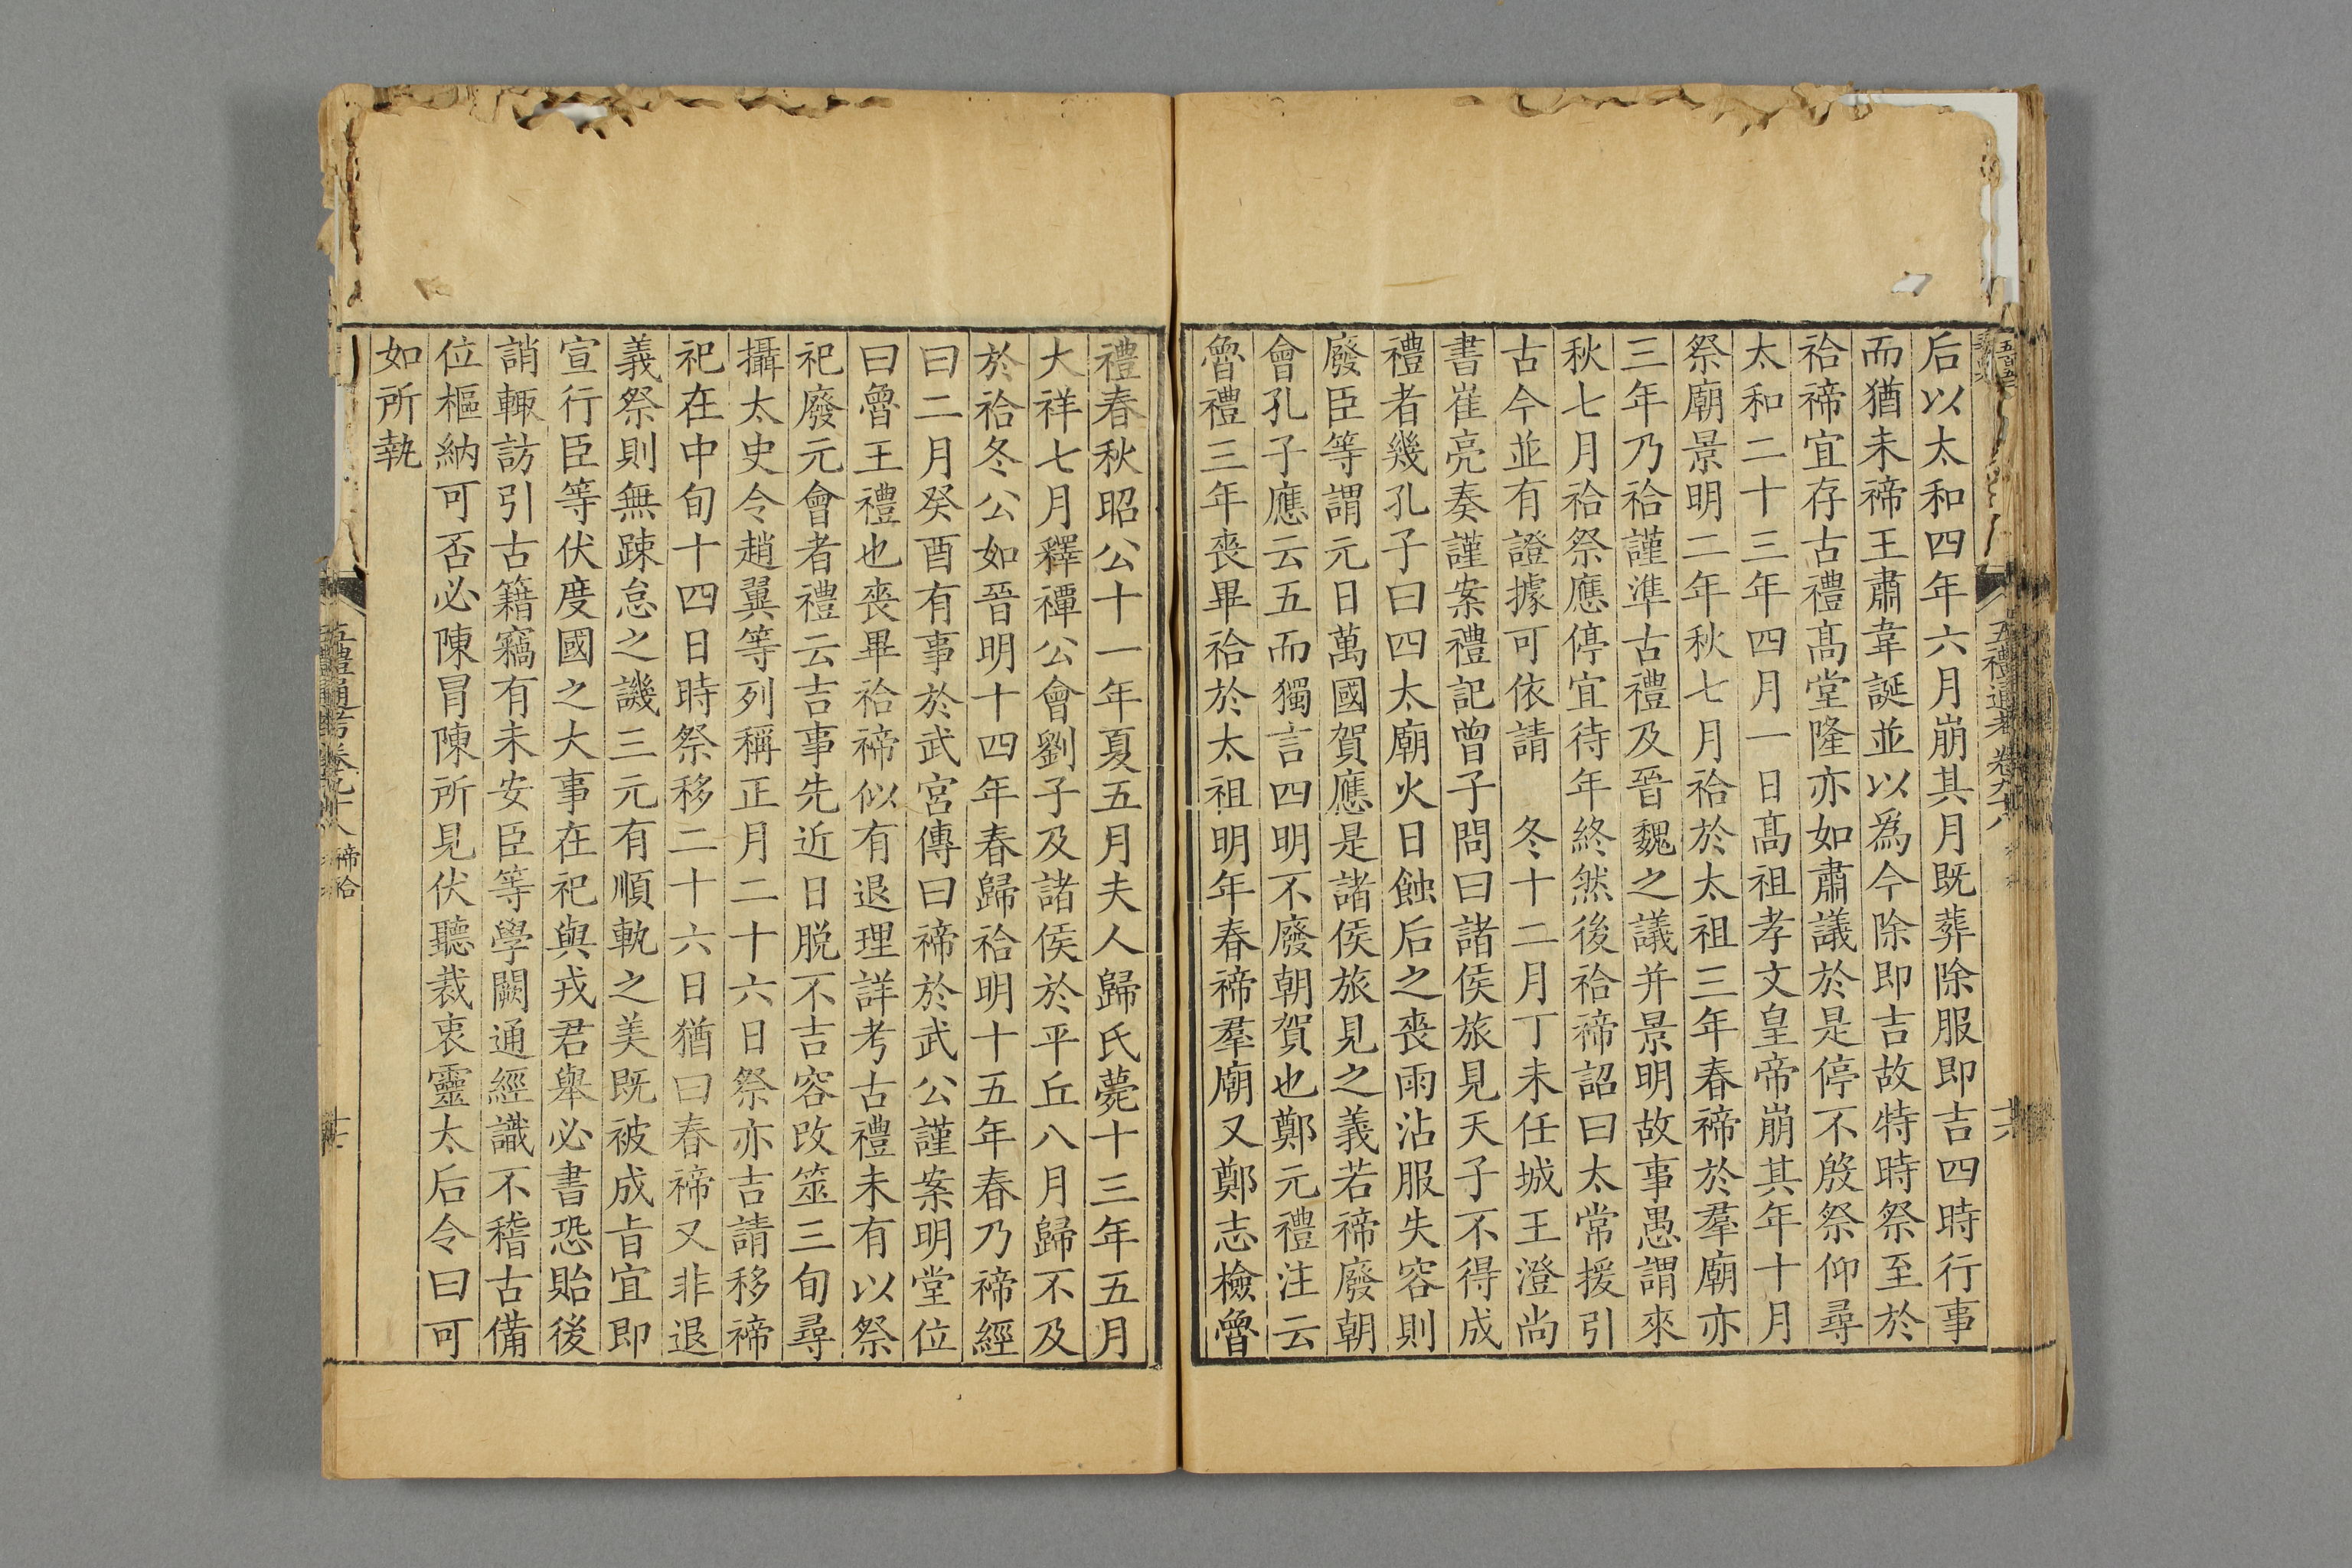 后以太和四年六月崩其月既葬除服即吉四時行事
而猶未禘王肅韋誕並以爲今除即吉故特時祭至於
祫禘宜存古禮髙堂隆亦如肅議於是停不殷祭仰尋
太和二十三年四月一日髙祖孝文皇帝崩其年十月
祭廟景明二年秋七月祫於太祖三年春禘於羣廟亦
三年乃祫謹準古禮及晉魏之議并景明故事愚謂來
秋七月祫祭應停宜待年終然後祫禘詔曰太常援引
古今並有證據可依請　冬十二月丁未任城王澄尚
書崔亮奏謹案禮記曾子問曰諸侯旅見天子不得成
禮者幾孔子曰四太廟火日蝕后之喪雨沾服失容則
廢臣等謂元日萬國賀應是諸侯旅見之義若禘廢朝
會孔子應云五而獨言四明不廢朝賀也鄭元禮注云
魯禮三年喪畢祫於太祖明年春禘羣廟又鄭志檢魯
禮春秋昭公十一年夏五月夫人歸氏薨十三年五月
大祥七月釋禫公會劉子及諸侯於平丘八月歸不及
於祫冬公如晉明十四年春歸祫明十五年春乃禘經
曰二月癸酉有事於武宮傳曰禘於武公謹案明堂位
曰魯王禮也喪畢祫禘似有退理詳考古禮未有以祭
祀廢元會者禮云吉事先近日脱不吉容改筮三旬尋
攝太史令趙翼等列稱正月二十六日祭亦吉請移禘
祀在中旬十四日時祭移二十六日猶曰春禘又非退
義祭則無踈怠之譏三元有順軌之美既被成㫖宜即
宣行臣等伏度國之大事在祀與戎君舉必書恐貽後
誚輙訪引古籍竊有未安臣等學闕通經識不稽古備
位樞納可否必陳冒陳所見伏聽裁衷靈太后令曰可
如所執
五禮通考卷九十八 禘祫